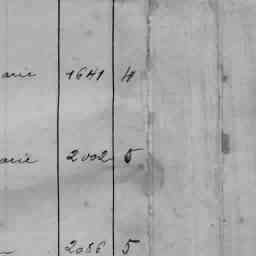 arie 1641 4
arie 2002 5
2086 5